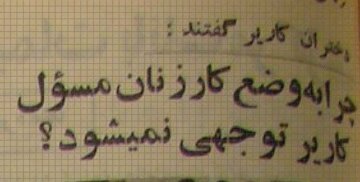 دختران کاریر گفتند :
چرا به وضع کار زنان مسؤل
کاریر توجهی نمیشود ؟